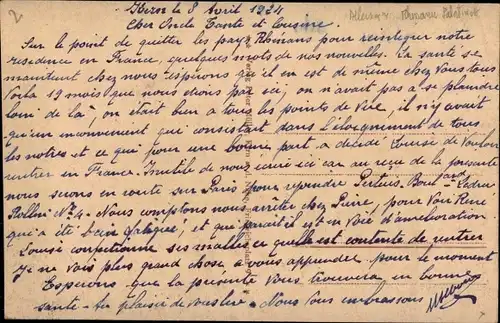 le 8 Avril 1924
Cher Oncle Tante et Cousine
Sur le point de quitter les pays Rhénans pour reintegrer notre
residence en France, quelques mots de nos nouvelles. La santé se
maintient chez nous. Esperons qu'il en est de même chez Vous tous
Voila 19 mois que nous étions par ici, on n'avait pas à se plaindre
loin de là, on était bien à tous les points de Vue, il n'y avait
qu'un inconvenient qui consistait dans l'éloignement de tous
les notres et ce qui pour une bonne part a décidé Louise de vouloir
rentrer en France. Inutile de nous ecrire ici car au reçu de la presente
nous serons en route sur Paris pour reprendre Boud Ledru
Rollin No 4. Nous comptons nous arrêter chez pour Voir René
qui a été bien fatigué, et qui parait il est en Voie d'amélioration
Louise confectionne ses malles et quelle est contente de rentrer
Je ne vois plus grand chose à vous apprendre pour le moment
Esperons que la presente Vous trouvera en bonne
sante. Au plaisir de vous lire. Nous Vous embrassons